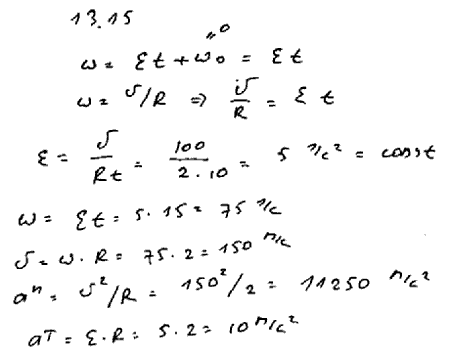 13.15
"0
ω = εt + ω0 = εt
ω = υ/R ⇒ υ/R = εt
ε = υ/Rt = 100/2·10 = 5 1/c² = const
ω = εt = 5·15 = 75 1/c
υ = ω·R = 75·2 = 150 м/c
aⁿ = υ²/R = 150²/2 = 11250 м/c²
aτ = ε·R = 5·2 = 10 м/c²